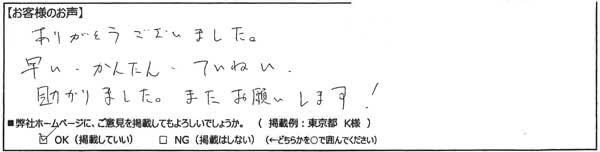 【お客様のお声】
ありがとうございました。
早い・かんたん・ていねい.
助かりました。またお願いします!
■弊社ホームページに、ご意見を掲載してもよろしいでしょうか。 ( 掲載例:東京都 K様 )
☑ OK(掲載していい) □ NG(掲載はしない) (←どちらかを○で囲んでください)